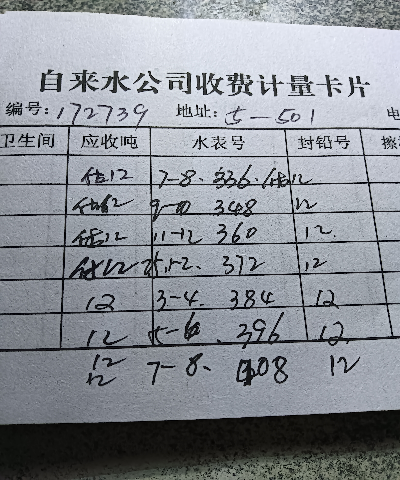 自来水公司收费计量卡片
编号:172739 地址:5-501 电
卫生间 应收吨 水表号 封铅号
估12 7-8. 336. 估12
估12 9-10 348 12
估12 11-12 360 12.
估12 25,1-2. 372 12
12 3-4. 384 12
12 5-6. 396 12.
12
12 7-8. 408 12